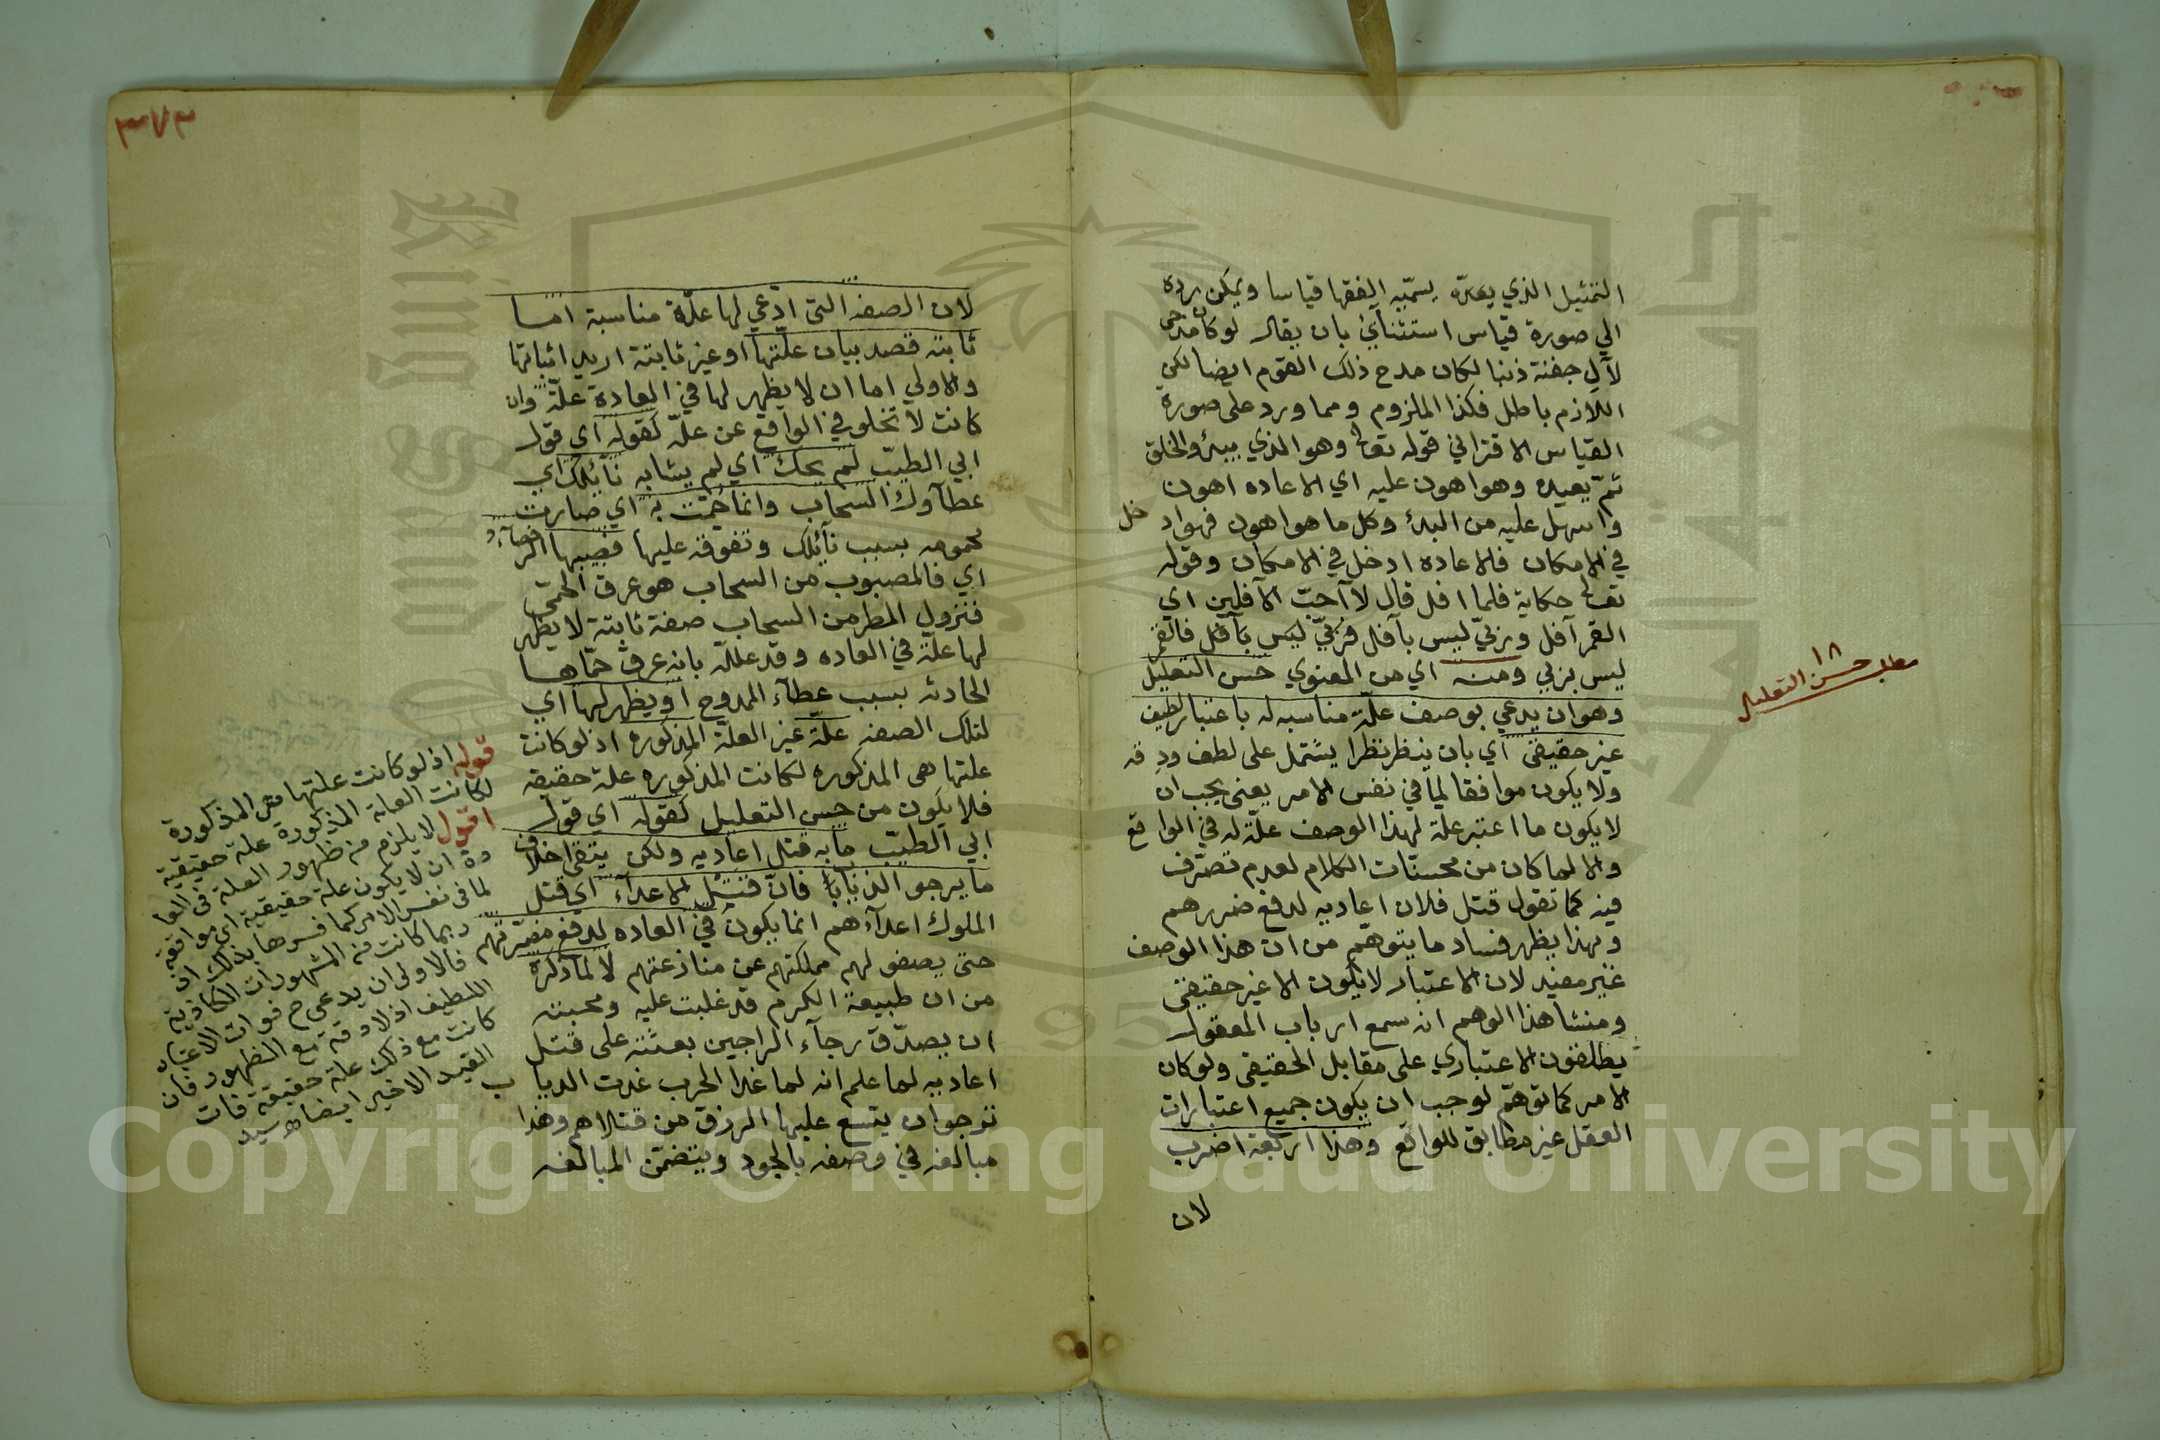 التمثيل الذي يعده يسميه الفقها قياسا ويمكن رده
الي صورة قياس استثنآئي بان يقال لو كان مدحي
لآل جفنة ذنبا لكان مدح ذلك القوم ايضا لكن
اللازم باطل فكذا الملزوم ومما ورد على صورة
القياس الاقتراني قوله تعالى وهو الذي يبدؤ الخلق
ثم يعيده وهو اهون عليه اي الاعاده اهون
واسهل عليه من البدئ وكل ما هو اهون فهو ادخل
في الامكان فالاعاده ادخل في الامكان وقوله
تعالى حكاية فلما افل قال لا آحب الآفلين اي
القمر آفل وربي ليس بآفل فربي ليس بآفل فالقمر
ليس بربي ومنه اي من المعنوي حسن التعليل
وهو ان يدعي لوصف علة مناسبه له باعتبار لطيف
غير حقيقي اي بان ينظر نظرا يشتمل على لطف ودقه
ولا يكون موافقا لما في نفس الامر يعني يجب ان
لا يكون ما اعتبر علة لهذا الوصف علة له في الواقع
والا لما كان من محسنات الكلام لعدم تصرف
فيه كما تقول قتل فلان اعاديه لدفع ضررهم
وبهذا يظهر فساد ما يتوهم من ان هذا الوصف
غير مفيد لان الاعتبار لا يكون الا غير حقيقي
ومنشا هذا الوهم انه سمع ارباب المعقول
يطلقون الاعتباري على مقابل الحقيقي ولو كان
الامر كما توهم لوجب ان يكون جميع اعتبارات
العقل غير مطابق للواقع وهذا اربعة اضرب
لان
١٨
مطلب حسن التعليل
٣٧٣
لان الصفه التي ادعي لها علة مناسبة اما
ثابته قصد بيان علتها او غير ثابتة اريد اثباتها
والاولي اما ان لا يظهر لها في العادة علة وان
كانت لا تخلو في الواقع عن علة كقوله اي قول
ابي الطيب لم يحك اي لم يشابه نآئلك اي
عطآوك السحاب وانما حمت به اي صارت
محمومه بسبب نآئلك وتفوقه عليها فصبيبها الرحضآء
اي فالمصبوب من السحاب هو عرق الحمى
فنزول المطر من السحاب صفة ثابتة لا يظهر
لها علة في العاده وقد علله بانه عرق حماها
الحادثه بسبب عطآء الممدوح او يظهر لها اي
لتلك الصفه علة غير العلة المذكوره اذ لو كانت
علتها هى المذكوره لكانت المذكوره علة حقيقه
فلا يكون من حسن التعليل كقوله اي قول
ابي الطيب ما به قتل اعاديه ولكن يتقي اخلاف
ما يرجو الذياب فان قتل الاعدآء اي قتل
الملوك اعدآءهم انما يكون في العاده لدفع مضرتهم
حتى يصفو لهم مملكتهم عن منازعتهم لا لما ذكره
من ان طبيعة الكرم قد غلبت عليه ومحبته
ان يصدق رجآء الراجين بعثته على قتل
اعاديه لما علم انه لما غدا الحرب غدت الذياب
ترجو ان يتسع عليها الرزق من قتلاهم وهذا
مبالغه في وصفه بالجود ويتضمن المبالغه
قوله اذ لو كانت علتها هى المذكورة
لكانت العلة المذكورة علة حقيقية
اقول لا يلزم من ظهور العلة فى العا
دة ان لا يكون علة حقيقية اى موافقة
لما فى نفس الامر كما فسرها بذلك اذ
ربما كانت من المشهورات الكاذبة
فالاولى ان يدعى ح فوات الاعتبار
اللطيف اذ لا دقة مع الظهور فان
كانت مع ذلك علة حقيقية فات
القيد الاخير ايضا سيد